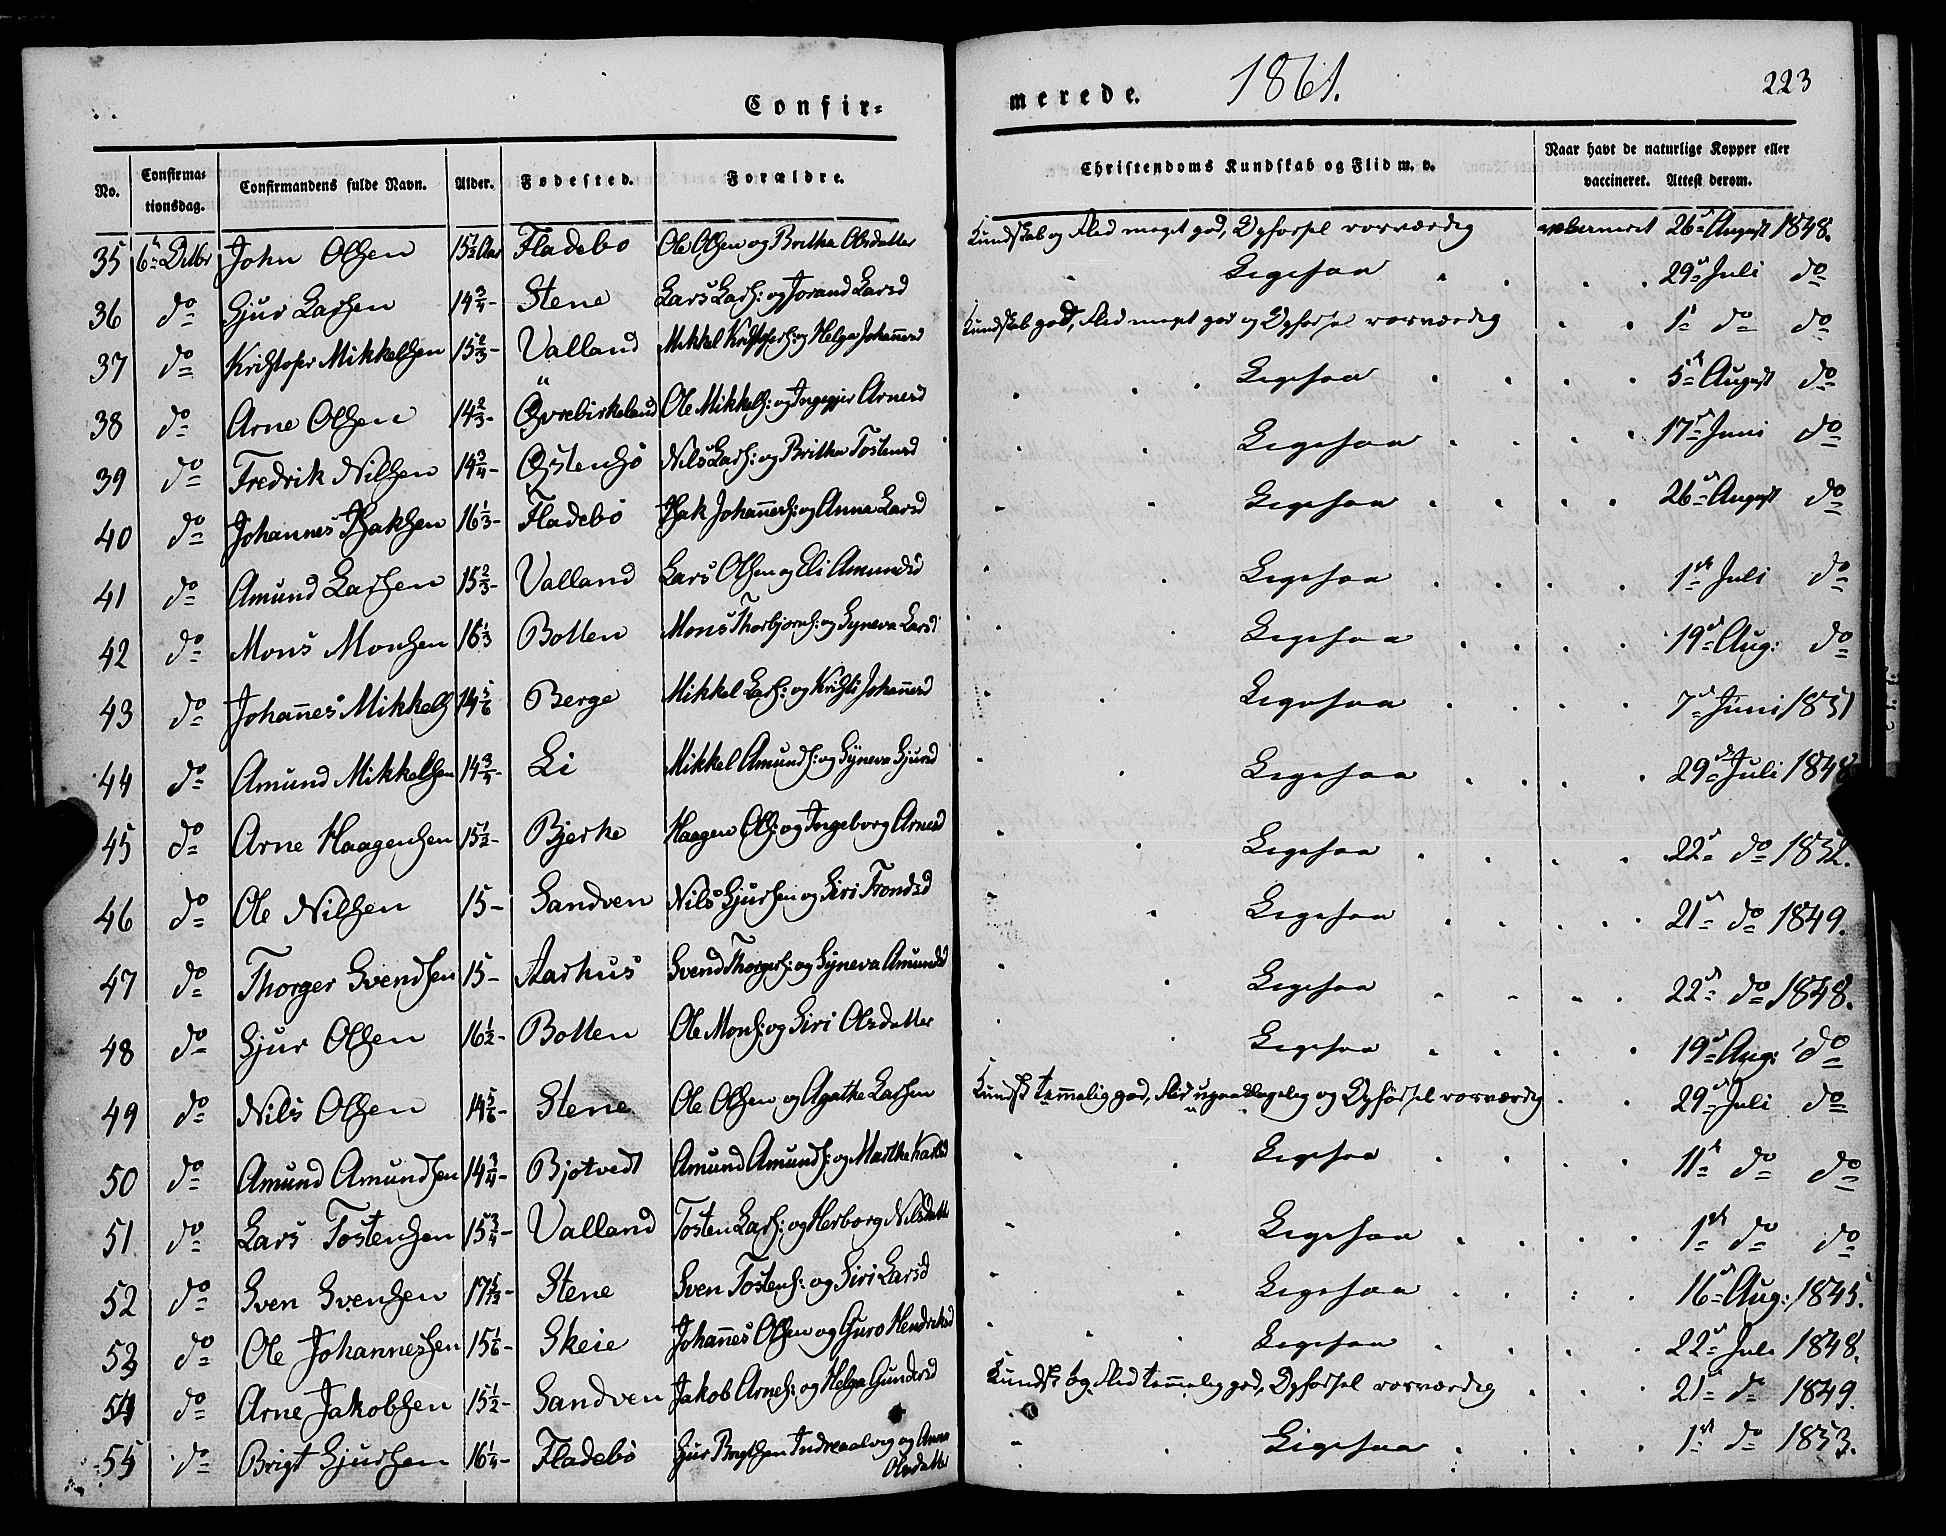 Confir=
merede. 1861. 223
No. Confirma=tionsdag. Confirmandens fulde Navn. Alder. Fødested. Forældre. Christendoms Kundskab og Flid m. v. Naar havt de naturlige Kopper eller vaccineret. Attest derom.
35 6te Octbr John Olsen 15½ Aar Fladebø Ole Olsen og Britha Olsdatter Kundskab og Flid meget god, Opførsel rosværdig vakcineret 26de August 1848.
36 do Sjur Larsen 14¾ - Stene Lars Lars: og Jorand Larsd " Ligesaa 29de Juli do
37 do Kristofer Mikkelsen 15⅔ - Valland Mikkel Kristofers: og Helga Johannesd Kundskab god, Flid meget god og Opførsel rosværdig 1ste do do
38 do Arne Olsen 14⅔ - Øvrebirkeland Ole Mikkels: og Ingegjer Arnesd " Ligesaa 5te August do
39 do Fredrik Nilsen 14¾ - Øystensø Nils Lars: og Britha Tostensd Ligesaa 17de Juni do
40 do Johannes Isaksen 16⅓ - Fladebø Isak Johannes: og Anna Larsd " Ligesaa 26de August do
41 do Amund Larsen 15⅔ - Valland Lars Olsen og Eli Amundsd " Ligesaa 1ste Juli do
42 do Mons Monsen 16⅓ Botten Mons Thorbjørns: og Syneva Larsd " Ligesaa 19de Aug: do
43 do Johannes Mikkels 14⅚ Berge Mikkel Lars: og Kristi Johannesd " Ligesaa 7de Juni 1851
44 do Amund Mikkelsen 14¾ - Li Mikkel Amunds: og Syneva Sjursd " Ligesaa 29de Juli 1848
45 do Arne Haagensen 15½ - Bjerke Haagen Ols: og Ingeborg Arnesd " Ligesaa 22de do 1852.
46 do Ole Nilsen 15 - Sandven Nils Sjursen og Siri Trondsd " Ligesaa 21de do 1849.
47 do Thorger Svendsen 15 - Aarhus Svend Thorgers: og Syneva Amundsd " Ligesaa 22de do 1848.
48 do Sjur Olsen 16½ - Botten Ole Mons: og Siri Olsdatter " Ligesaa 19de Aug: do
49 do Nils Olsen 14⅚ - Stene Ole Olsen og Agathe Larsen Kundsk temmelig god, Flid upaaklagelig og Opførsel rosværdig 29de Juli do
50 do Amund Amundsen 14¾ - Bjotvedt Amund Amunds: og Marthe " Ligesaa 11te do do
51 do Lars Tostensen 15¾ - Valland Tosten Lars: og Herborg Nilsdatt " Ligesaa 1ste do do
52 do Sven Svensen 17 5/12 - Stene Sven Tostens: og Siri Larsd " Ligesaa 16de Aug: 1845.
53 do Ole Johannessen 15⅙ - Skeie Johannes Olsen og Guro Hendriksd " Ligesaa 22de Juli 1848.
54 do Arne Jakobsen 15½ - Sandven Jakob Arnes: og Helga Gundersd Kundsk og Flid temmelig god, Opførsel rosværdig 21de do 1849.
55 do Brigt Sjursen 16¼ - Fladebø Sjur Brigtsen Indreaalvig og Anna " Ligesaa 1ste do 1853.
Olsdatter